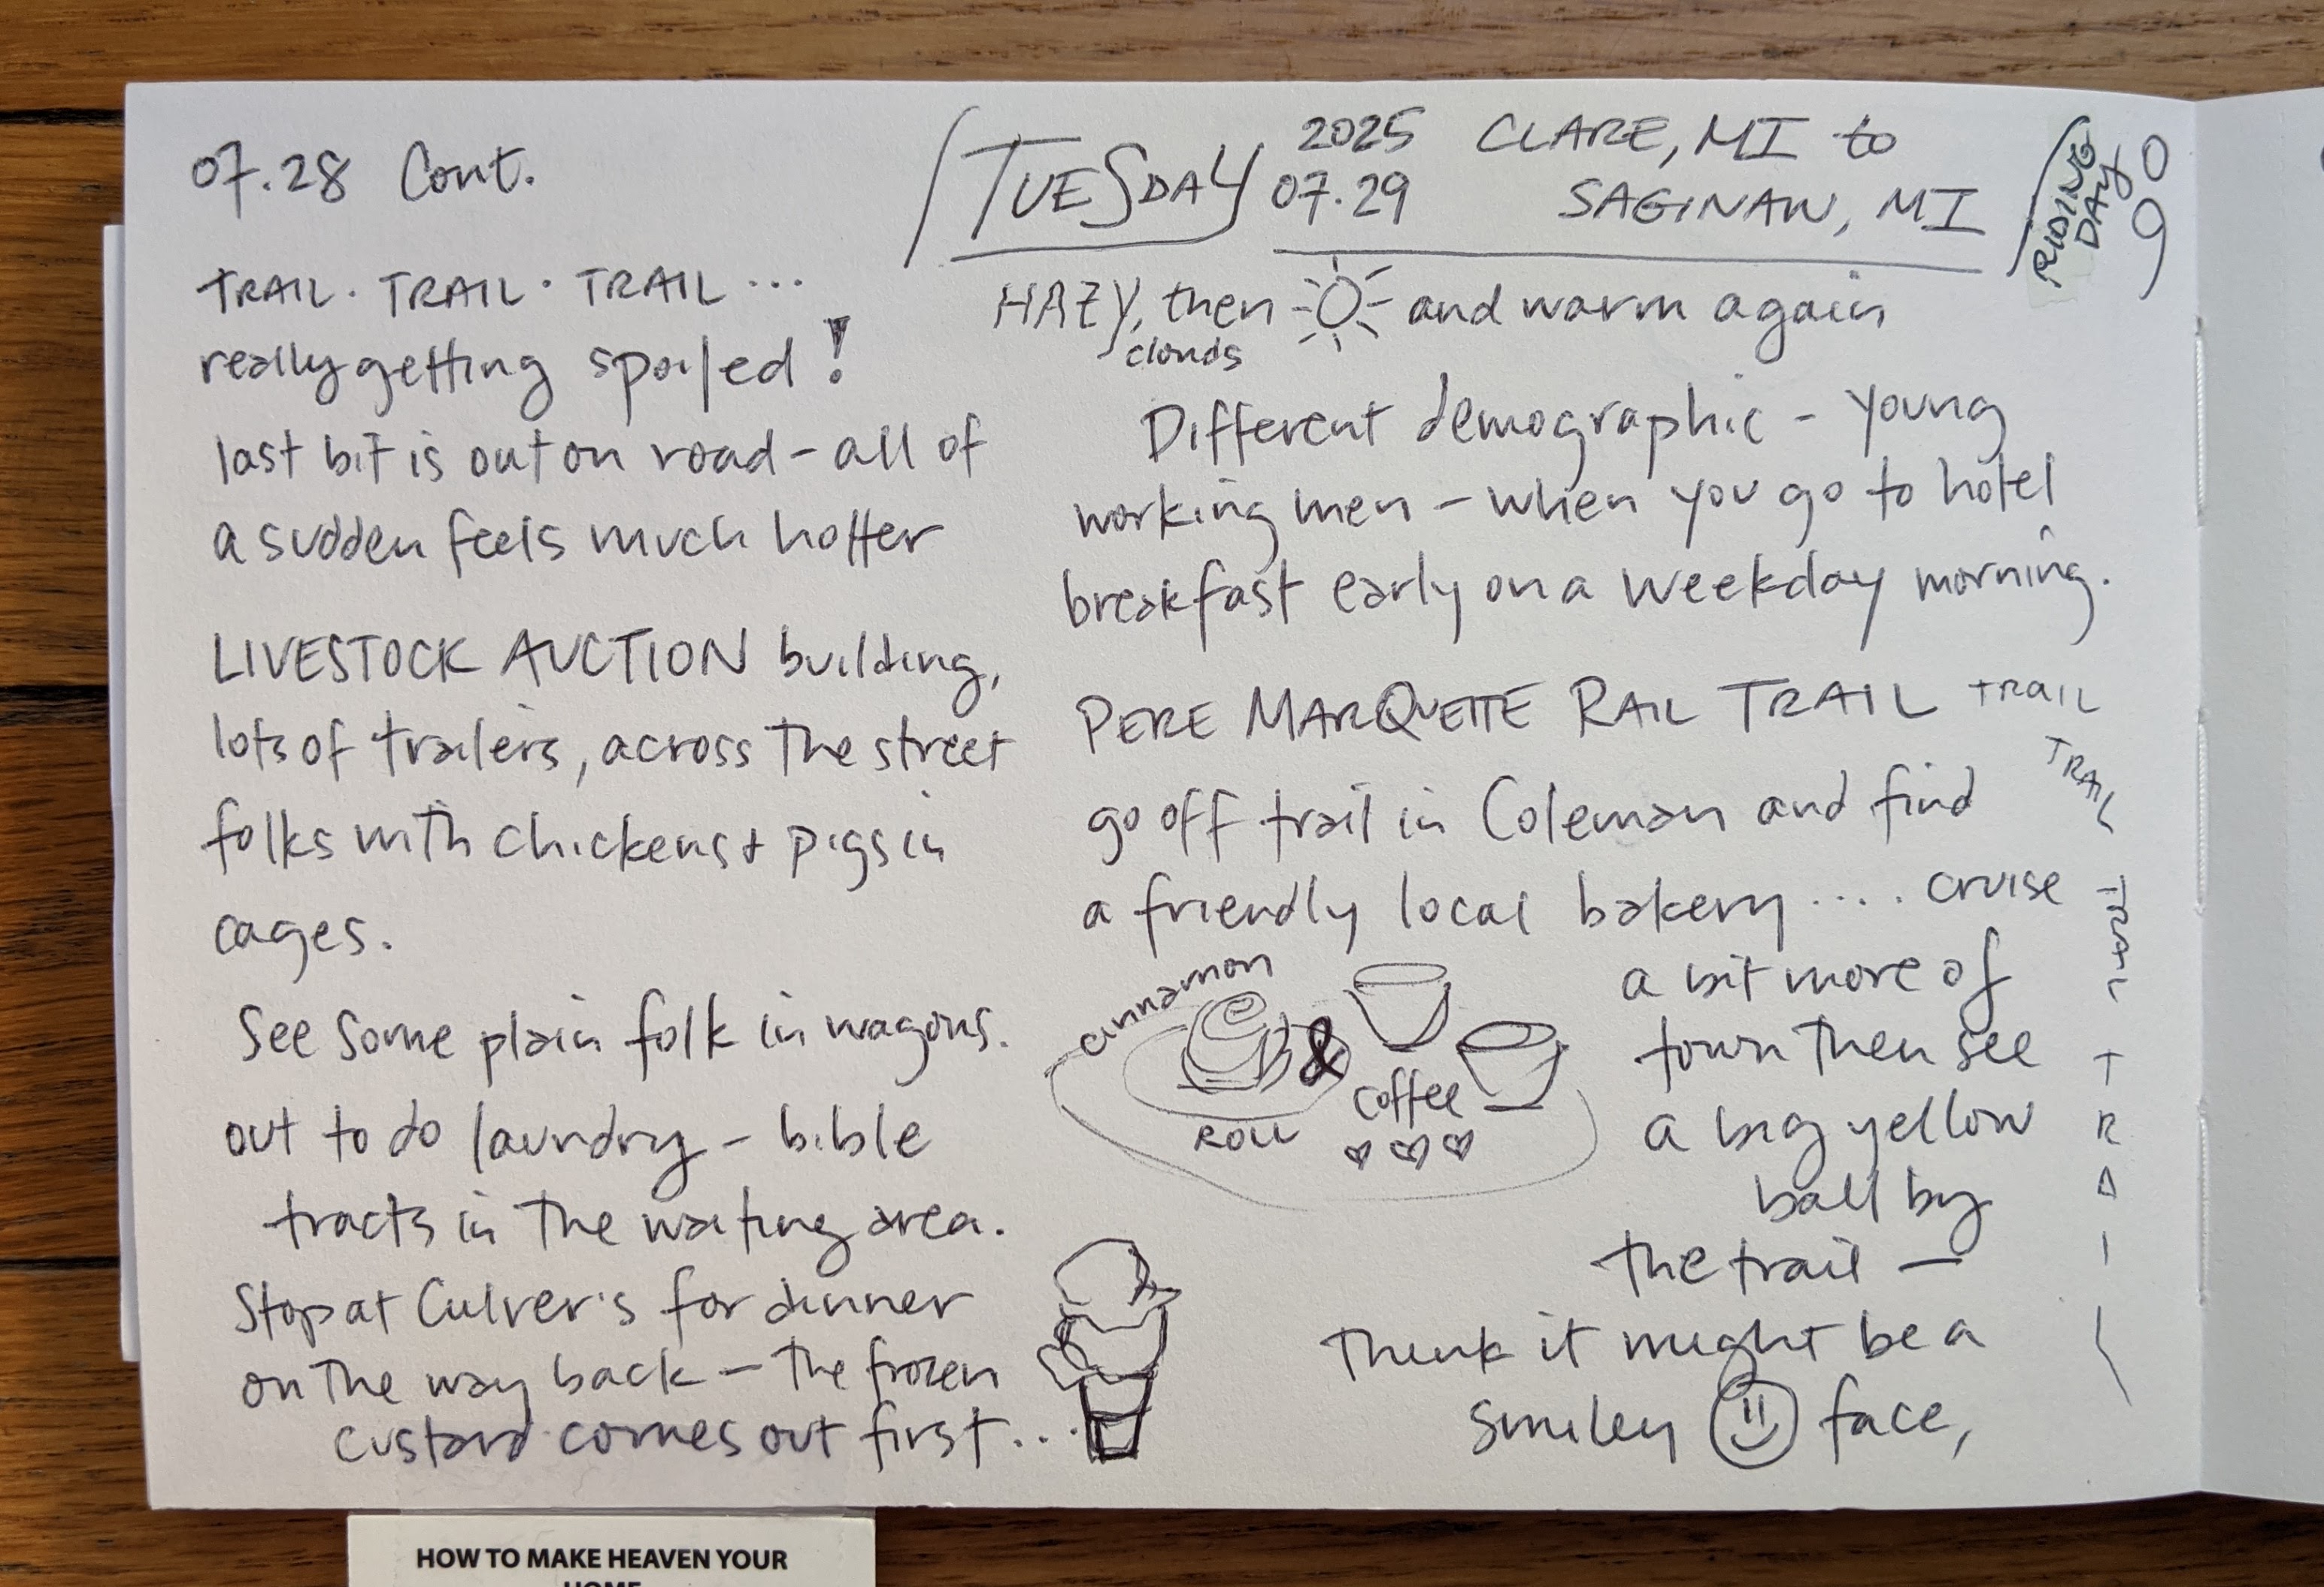 07.28 Cont.
TRAIL. TRAIL. TRAIL...
really getting spoiled!
last bit is out on road - all of
a sudden feels much hotter
LIVESTOCK AUCTION building,
lots of trailers, across the street
folks with chickens + pigs in
cages.
See some plain folk in wagons.
out to do laundry - bible
tracts in the waiting area.
Stop at Culver's for dinner
on the way back - the frozen
custard comes out first...
TUESDAY 2025 07.29
CLARE, MI to
SAGINAW, MI
RIDING DAY 90
HAZY, then and warm again
clouds
Different demographic - young
working men - when you go to hotel
breakfast early on a weekday morning.
PERE MARQUETTE RAIL TRAIL TRAIL
TRAIL
TRAIL
TRAIL
go off trail in Coleman and find
a friendly local bakery.... cruise
cinnamon
ROLL
&
coffee
a bit more of
town then see
a big yellow
ball by
the trail -
think it might be a
smiley face,
HOW TO MAKE HEAVEN YOUR
HOME